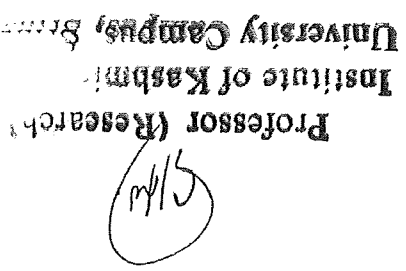 Professor (Research
Institute of Kashmi
University Campus,